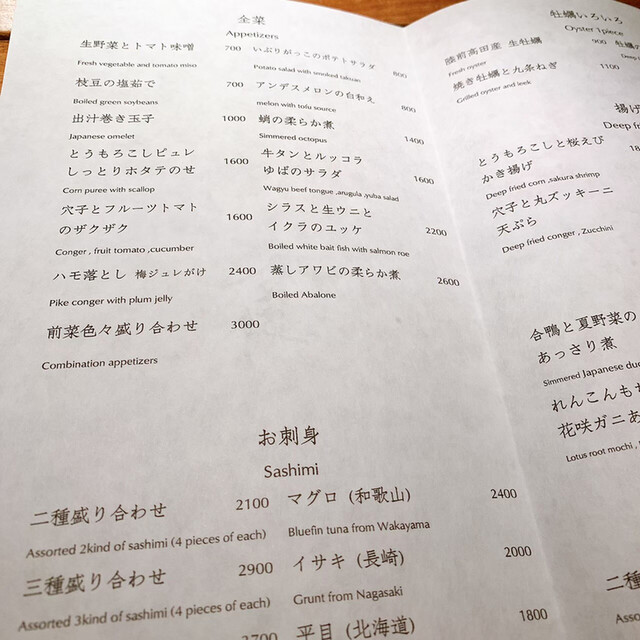 全菜
Appetizers
生野菜とトマト味噌 700
Fresh vegetable and tomato miso
枝豆の塩茹で 700
Boiled green soybeans
出汁巻き玉子 1000
Japanese omelet
とうもろこしピュレ
しっとりホタテのせ 1600
Corn puree with scallop
穴子とフルーツトマト
のザクザク 1600
Conger , fruit tomato ,cucumber
ハモ落とし 梅ジュレがけ 2400
Pike conger with plum jelly
前菜色々盛り合わせ 3000
Combination appetizers
いぶりがっこのポテトサラダ 800
Potato salad with smoked takuan
アンデスメロンの白和え 800
melon with tofu source
蛸の柔らか煮 1400
Simmered octopus
牛タンとルッコラ
ゆばのサラダ 1600
Wagyu beef tongue ,arugula ,yuba salad
シラスと生ウニと
イクラのユッケ 2200
Boiled white bait fish with salmon roe
蒸しアワビの柔らか煮 2600
Boiled Abalone
お刺身
Sashimi
二種盛り合わせ 2100
Assorted 2kind of sashimi (4 pieces of each)
三種盛り合わせ 2900
Assorted 3kind of sashimi (4 pieces of each)
マグロ (和歌山) 2400
Bluefin tuna from Wakayama
イサキ (長崎) 2000
Grunt from Nagasaki
平目 (北海道) 1800
牡蠣いろいろ
Oyster 1piece
陸前高田産 生牡蠣 900
Fresh oyster
焼き牡蠣と九条ねぎ 1100
Grilled oyster and leek
揚げ
Deep f
とうもろこしと桜えび
かき揚げ
Deep fried corn ,sakura shrimp
穴子と丸ズッキーニ
天ぷら
Deep fried conger , Zucchini
合鴨と夏野菜の
あっさり煮
Simmered Japanese duc
れんこんも
花咲ガニあ
Lotus root mochi ,
二種
Asso